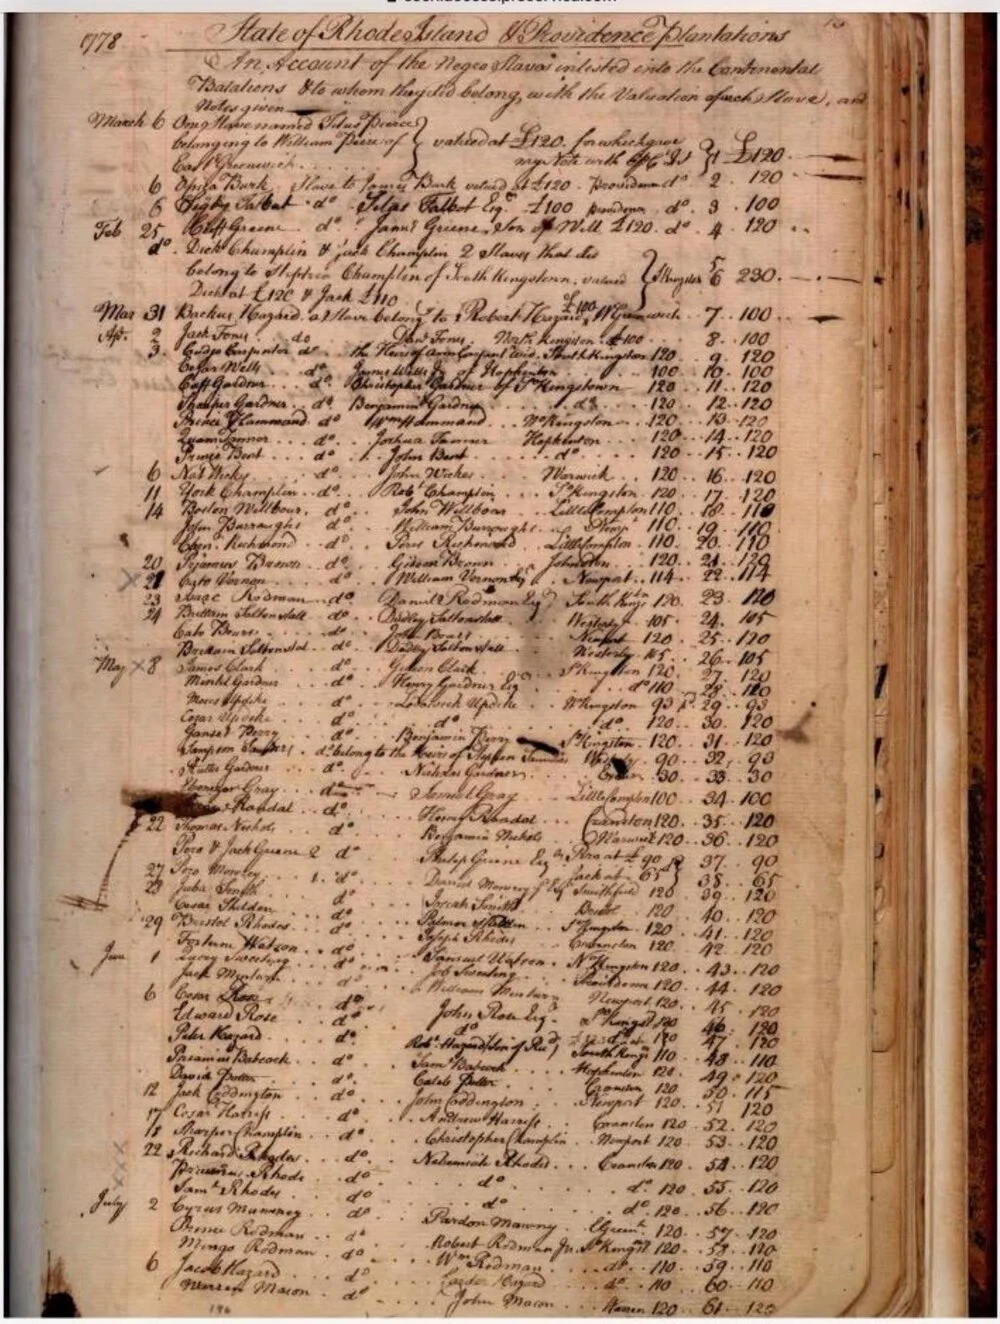 1778
State of Rhode Island & Providence Plantations
An Account of the Negro Slaves inlisted into the Continental
Batalions & to whom they did belong, with the Valuation of each Slave, and
Notes given
March 6 One Slave named Titus Pierce
belonging to William Peirce of valued at £120. for which gave
East Greenwich my Note with 1 £120
6 Slave to James Burk valued at £120 Providence do 2 120
6 Digby Talbut do Silas Talbot Esqr £100 providence do 3 100
Feb 25 Cuff Greene do Greene, Son of Will £120. do 4 120
do Dick Champlin & Jack Champlin 2 Slaves that did
belong to Stephen Champlin of South Kingstown, valued S Kingston 5 6 230
Dick at £120 & Jack £110
Mar 31 Backus Hazard a Slave belong to Robert Hazard £100 W Greenwich 7 100
Ap. 2 Jack Fones do Danl Fones North Kingston £100 8 100
3 Cudgo Carpenter do the Heirs of South Kingston 120 9 120
Cezar Wells do James Wells Jr of Hopkinton 100 10 100
Cuff Gardner do Christopher Gardner of So Kingstown 120 11 120
Sharper Gardner do Benjamin Gardner do 120 12 120
Prince Hammond do Wm Hammond No Kingston 120 13 120
Quam Tanner do Joshua Tanner Hopkinton 120 14 120
Prince Bent do John Bent do 120 15 120
6 Nat Wicks do John Wickes Warwick 120 16 120
11 York Champlin do Robt Champlin So Kingston 120 17 120
14 Boston Willbour do John Willbour Little Compton 110 18 110
John Burroughs do William Burroughs do 110 19 110
Eben. Richmond do Perez Richmond Little Compton 110 20 110
20 Brown do Gideon Brown Johnston 120 21 120
21 Cato Vernon do William Vernon Esqr Newport 114 22 114
23 Isaac Rodman do Daniel Rodman Esqr South Kings 120 23 120
24 Brittain Saltonstall do Dudley Saltonstall Westerly 105 24 105
Cato Bours do John Bours Newport 120 25 120
Brittain Saltonstal do Dudley Saltonstall Westerly 105 26 105
May 8 James Clark do Gideon Clark S Kingston 120 27 120
Mintel Gardner do Henry Gardner Esqr do 110 28
Moses Updike Lodowick Updike N Kingston 93 29 93
Cesar Updike do do do 120 30 120
Ganset Perry do Benjamin Perry S Kingston 120 31 120
Sampson do belong to the Heirs of Stephen Westerly 90 32 90
Rutter Gardner do Nicholas Gardner Exeter 30 33 30
Ebenezer Gray do Samuel Gray Little Compton 100 34 100
Randal do Henry Randal Cranston 120 35 120
22 Thomas Nichols do Benjamin Nichols Warwick 120 36 120
Pero & Jack Greene 2 do Philip Greene Esqr Pero at £90 37 90
27 Pero Mowry 1 do Jack at 65 38 65
Daniel Mowry Smithfield 120 39 120
23 Juba Smith do Josiah Smith Bristol 120 40 120
Cesar Sheldon do Palmer Sheldon So Kingston 120 41 120
29 Bristol Rhodes do Joseph Rhodes Cranston 120 42 120
Fortune Watson do Samuel Watson N Kingston 120 43 120
June 1 Sweeting do Job Sweeting Providence 120 44 120
Jack Minturn do William Minturn Newport 120 45 120
6 Cesar Rose do John Rose Esqr So Kingst 120 46 120
Edward Rose do do 120 47 120
Peter Hazard do Robt Hazard (son of Rid) South Kings 110 48 110
Babcock do Saml Babcock Hopkinton 120 49 120
David Potter do Caleb Potter Cranston 120 50 115
12 Jack Coddington do John Coddington Newport 120 51 120
17 Cesar Harriss do Andrew Harriss Cranston 120 52 120
18 Sharper Champlin do Christopher Champlin Newport 120 53 120
22 Richard Rhodes do Nehemiah Rhodes Cranston 120 54 120
Rhode do do do 120 55 120
Saml Rhodes do do 120 56 120
July 2 Cyrus do Pardon Mawny E Green 120 57 120
Prince Rodman do Robert Rodman Jr. So Kingst 120 58 120
Mingo Rodman do Wm Rodman do 110 59 110
6 Jacob Hazard do Carder Hazard do 110 60 110
Warren Mason do John Mason Warren 120 61 120